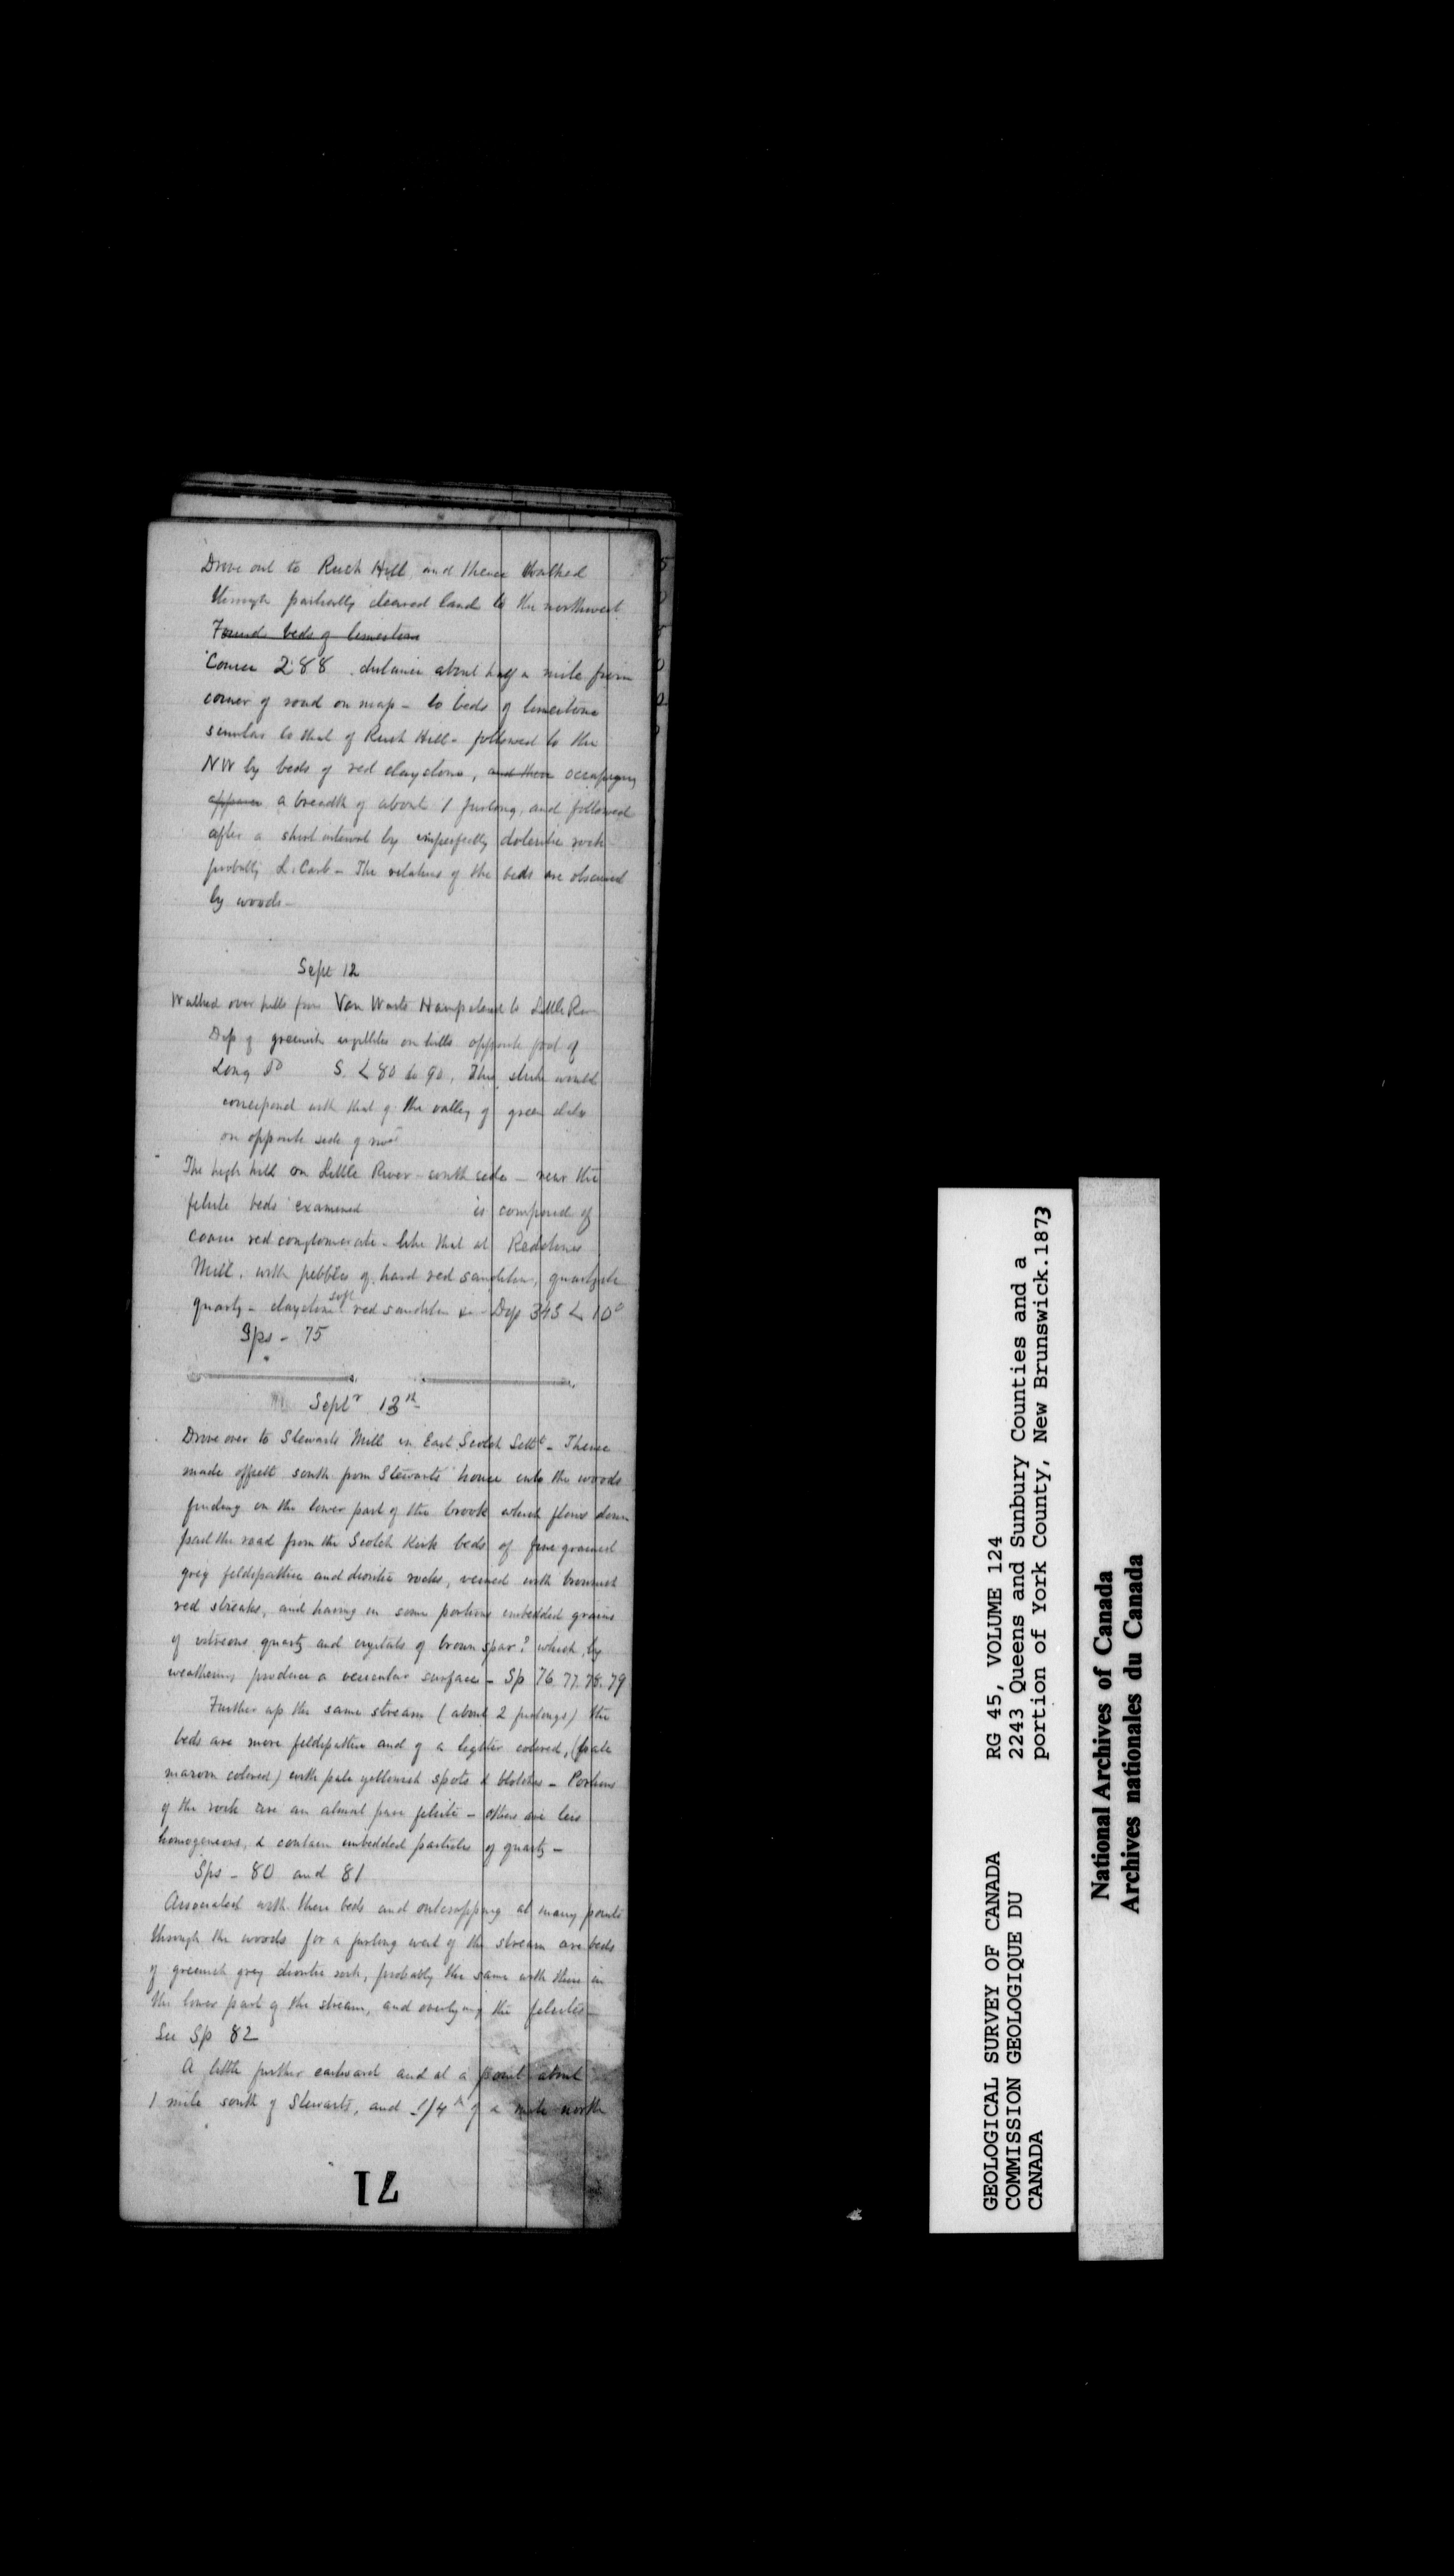 Drove out to Rush Hill, and thence walked
through partially cleared land to the northwest.
Found beds of limestone
Course 288 distance about half a mile from
corner of road on map - to beds of limestone
similar to that of Rush Hill - followed to the
NW by beds of red claystone, and then occupying
a breadth of about 1 furlong, and followed
after a short interval by imperfectly doleritic rock
probably L. Carb - The relations of the beds are obscured
by woods -
Sept 12
Walked over hills from Van Warts Hampstead to Little
Dip of greenish argillites on hills opposite foot of
Long S. < 80 to 90. This strike would
correspond with that of the valley of green
on opposite side of
The high hill on Little River - south side - near the
felsite beds examined is composed of
coarse red conglomerate - like that at Redstones
Mill, with pebbles of hard red sandstone, quartzite
quartz - claystone soft red sandstone & - Dip 343 < 10°
Sps - 75
Septr 13th
Drove over to Stewarts Mill in East Scotch Settt - Thence
made offsett south from Stewarts house into the woods
finding in the lower part of the brook which flows down
past the road from the Scotch Kirk beds of fine grained
grey feldspathic and dioritic rocks, veined with brownish
red streaks, and having in some portions imbedded grains
of vitreous quartz and crystals of brown spar? which by
weathering produce a vesicular surface - Sp 76. 77. 78. 79
Further up the same stream (about 2 furlongs) the
beds are more feldspathic and of a lighter colored, (pale
maroon colored) with pale yellowish spots & blotches - Portions
of the rock are an almost pure felsite - others are less
homogeneous, & contain imbedded particles of quartz -
Sps - 80 and 81
Associated with these beds and outcropping at many points
through the woods for a furlong west of the stream are beds
of greenish grey dioritic rock, probably the same with those in
the lower part of the stream, and overlying the felsites -
See Sp 82
A little further eastward and at a point about
1 mile south of Stewarts, and 1/4th of a mile north
71
GEOLOGICAL SURVEY OF CANADA RG 45, VOLUME 124
COMMISSION GEOLOGIQUE DU 2243 Queens and Sunbury Counties and a
CANADA portion of York County, New Brunswick.1873
National Archives of Canada
Archives nationales du Canada